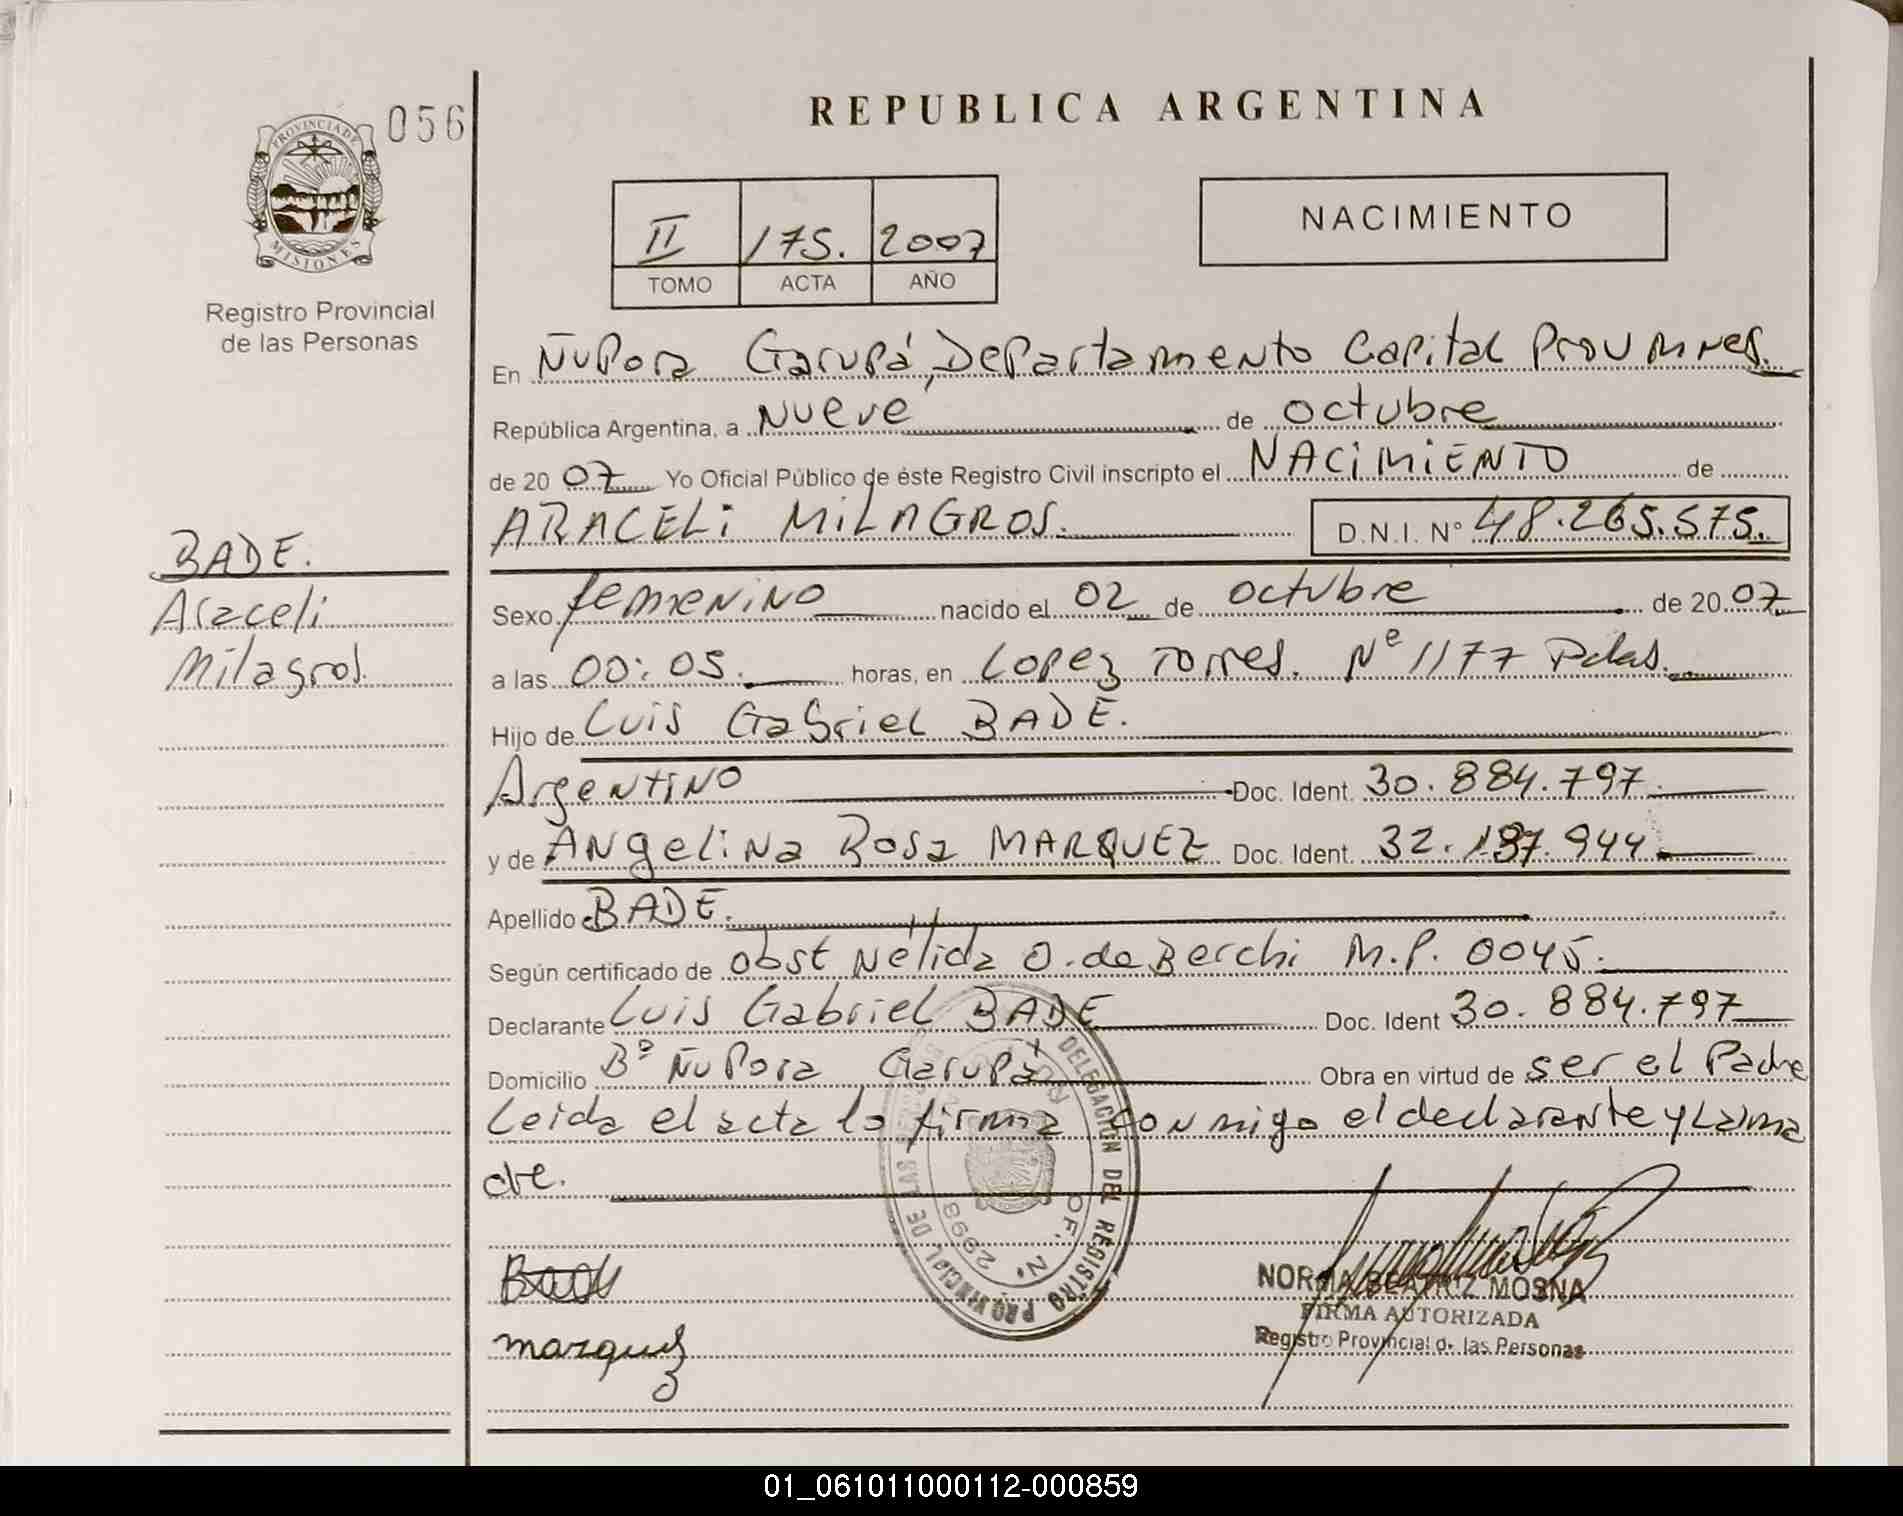 056
PROVINCIA DE
MISIONES
Registro Provincial
de las Personas
REPUBLICA ARGENTINA
II 175. 2007
TOMO ACTA AÑO
NACIMIENTO
En Ñu Pora Garupá, Departamento Capital Prov Mnes.
República Argentina, a Nueve de octubre
de 20 07 Yo Oficial Público de éste Registro Civil inscripto el NACIMIENTO de
ARACELI MILAGROS. D.N.I. Nº 48.265.575.
BADE.
Araceli
Milagros.
Sexo femenino nacido el 02 de octubre de 20 07
a las 00:05. horas, en Lopez Torres. Nº 1177 Pdas.
Hijo de Luis Gabriel BADE.
Argentino Doc. Ident. 30.884.797.
y de Angelina Rosa MARQUEZ Doc. Ident. 32.187.944.
Apellido BADE.
Según certificado de obst Nélida O. de Berchi M.P. 0045.
Declarante Luis Gabriel BADE Doc. Ident 30.884.797
Domicilio Bº Ñu Pora Garupá Obra en virtud de ser el Padre
Leida el acta la firma conmigo el declarante y la ma
dre.
DELEGACION DEL REGISTRO PROVINCIAL DE LAS
OF. Nº 2898
Bade
marquez
NORMA BEATRIZ MOSNA
FIRMA AUTORIZADA
Registro Provincial de las Personas
01_061011000112-000859